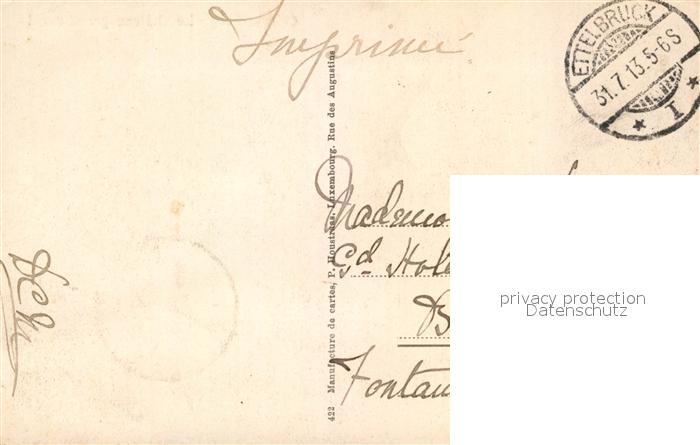 Imprimé
ETTELBRUCK
31.7.13.5-6S
I
422 Manufacture de cartes, P. Houstraas, Luxembourg. Rue des Augustins
Mademo
Gd. Hote
B
Fontai
privacy protection
Datenschutz